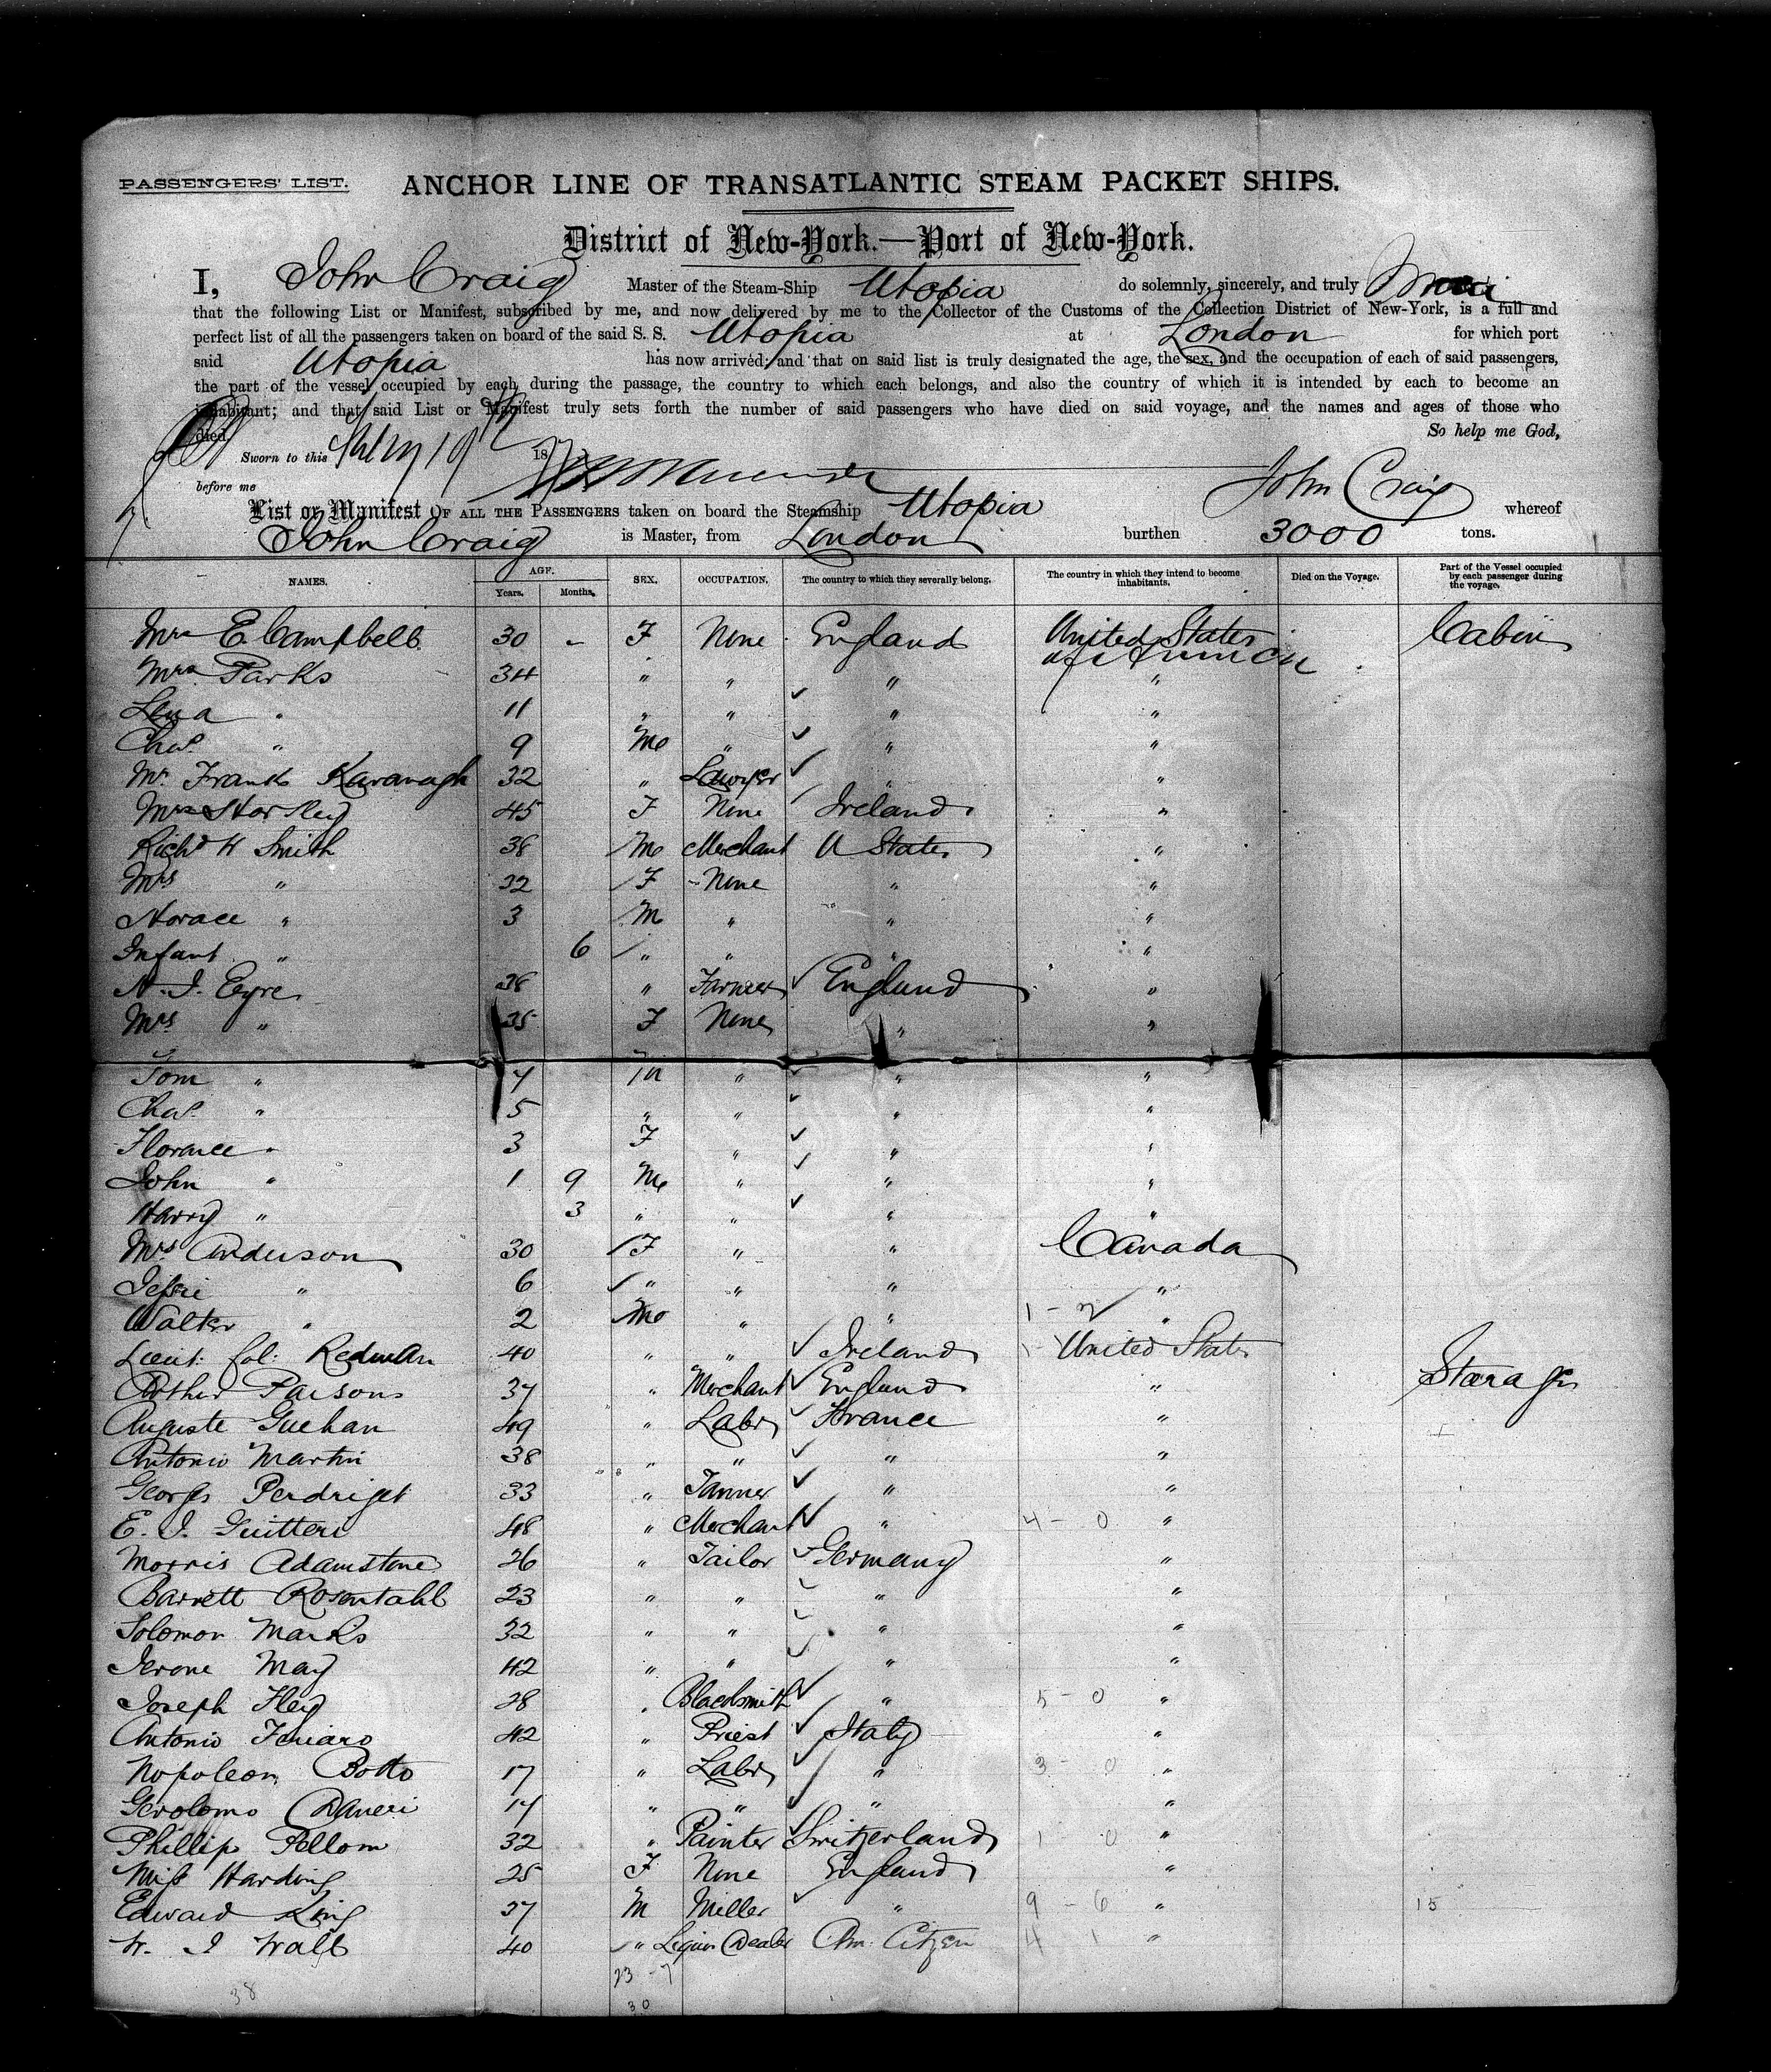 PASSENGERS' LIST. ANCHOR LINE OF TRANSATLANTIC STEAM PACKET SHIPS.
District of New-York.—Port of New-York.
I, John Craig Master of the Steam-Ship Utopia do solemnly, sincerely, and truly
that the following List or Manifest, subscribed by me, and now delivered by me to the Collector of the Customs of the Collection District of New-York, is a full and
perfect list of all the passengers taken on board of the said S. S. Utopia at London for which port
said Utopia has now arrived; and that on said list is truly designated the age, the sex, and the occupation of each of said passengers,
the part of the vessel occupied by each during the passage, the country to which each belongs, and also the country of which it is intended by each to become an
inhabitant; and that said List or Manifest truly sets forth the number of said passengers who have died on said voyage, and the names and ages of those who
died. So help me God,
Sworn to this 19 18
before me John Craig
List or Manifest OF ALL THE PASSENGERS taken on board the Steamship Utopia whereof
John Craig is Master, from London burthen 3000 tons.
NAMES. AGE. Years. Months. SEX. OCCUPATION. The country to which they severally belong. The country in which they intend to become inhabitants. Died on the Voyage. Part of the Vessel occupied by each passenger during the voyage.
Mrs E. Campbell 30 - F None England United States of America Cabin
Mrs Parks 34 " " " "
Lena " 11 " " " "
Chas. " 9 M " " "
Mr. Frank Kavanagh 32 " Lawyer " "
Mrs Hartley 45 F None Ireland "
Richd H Smith 38 M Merchant U States "
Mrs " 32 F None " "
Horace " 3 M " " "
Infant " 6 " " " "
N. J. Eyre 38 " Farmer England "
Mrs " 35 F None " "
Tom " 7 M " " "
Chas. " 5 " " " "
Florence " 3 F " " "
John " 1 9 M " " "
Harry " 3 " " " "
Mrs Anderson 30 F " " Canada
Jessie " 6 " " " "
Walter " 2 M " " "
Lieut: Col: Redman 40 " " Ireland United States
Arthur Parsons 37 " Merchant England " Starage
Auguste Guehan 49 " Labr France "
Antonio Martin 38 " " " "
Georges Perdriget 33 " Tanner " "
E. J. Guitteri 48 " Merchant " 4 - 0 "
Morris Adamstone 26 " Tailor Germany "
Barrett Rosentahl 23 " " " "
Solomon Marks 32 " " " "
Jerone May 42 " " " "
Joseph Fley 28 " Blacksmith " 5 - 0 "
Antonio 42 " Priest Italy "
Napoleon Botto 17 " Labr " 3 0 "
Gerolomo Daneri 14 " " " "
Phillip Pellom 32 " Painter Switzerland 1 0 "
Miss Harding 25 F None England "
Edward King 27 M Miller " 9 - 6 " 15
W. J Wall 40 " Liquor Dealer Am. Citzen 4 - 1 "
23 - 7
38 30